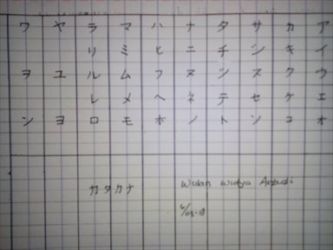 アイウエオ
カキクケコ
サシスセソ
タチツテト
ナニヌネノ
ハヒフヘホ
マミムメモ
ラリルレロ
ヤユヨ
ワヲン
カタカナ
Wulan Widya